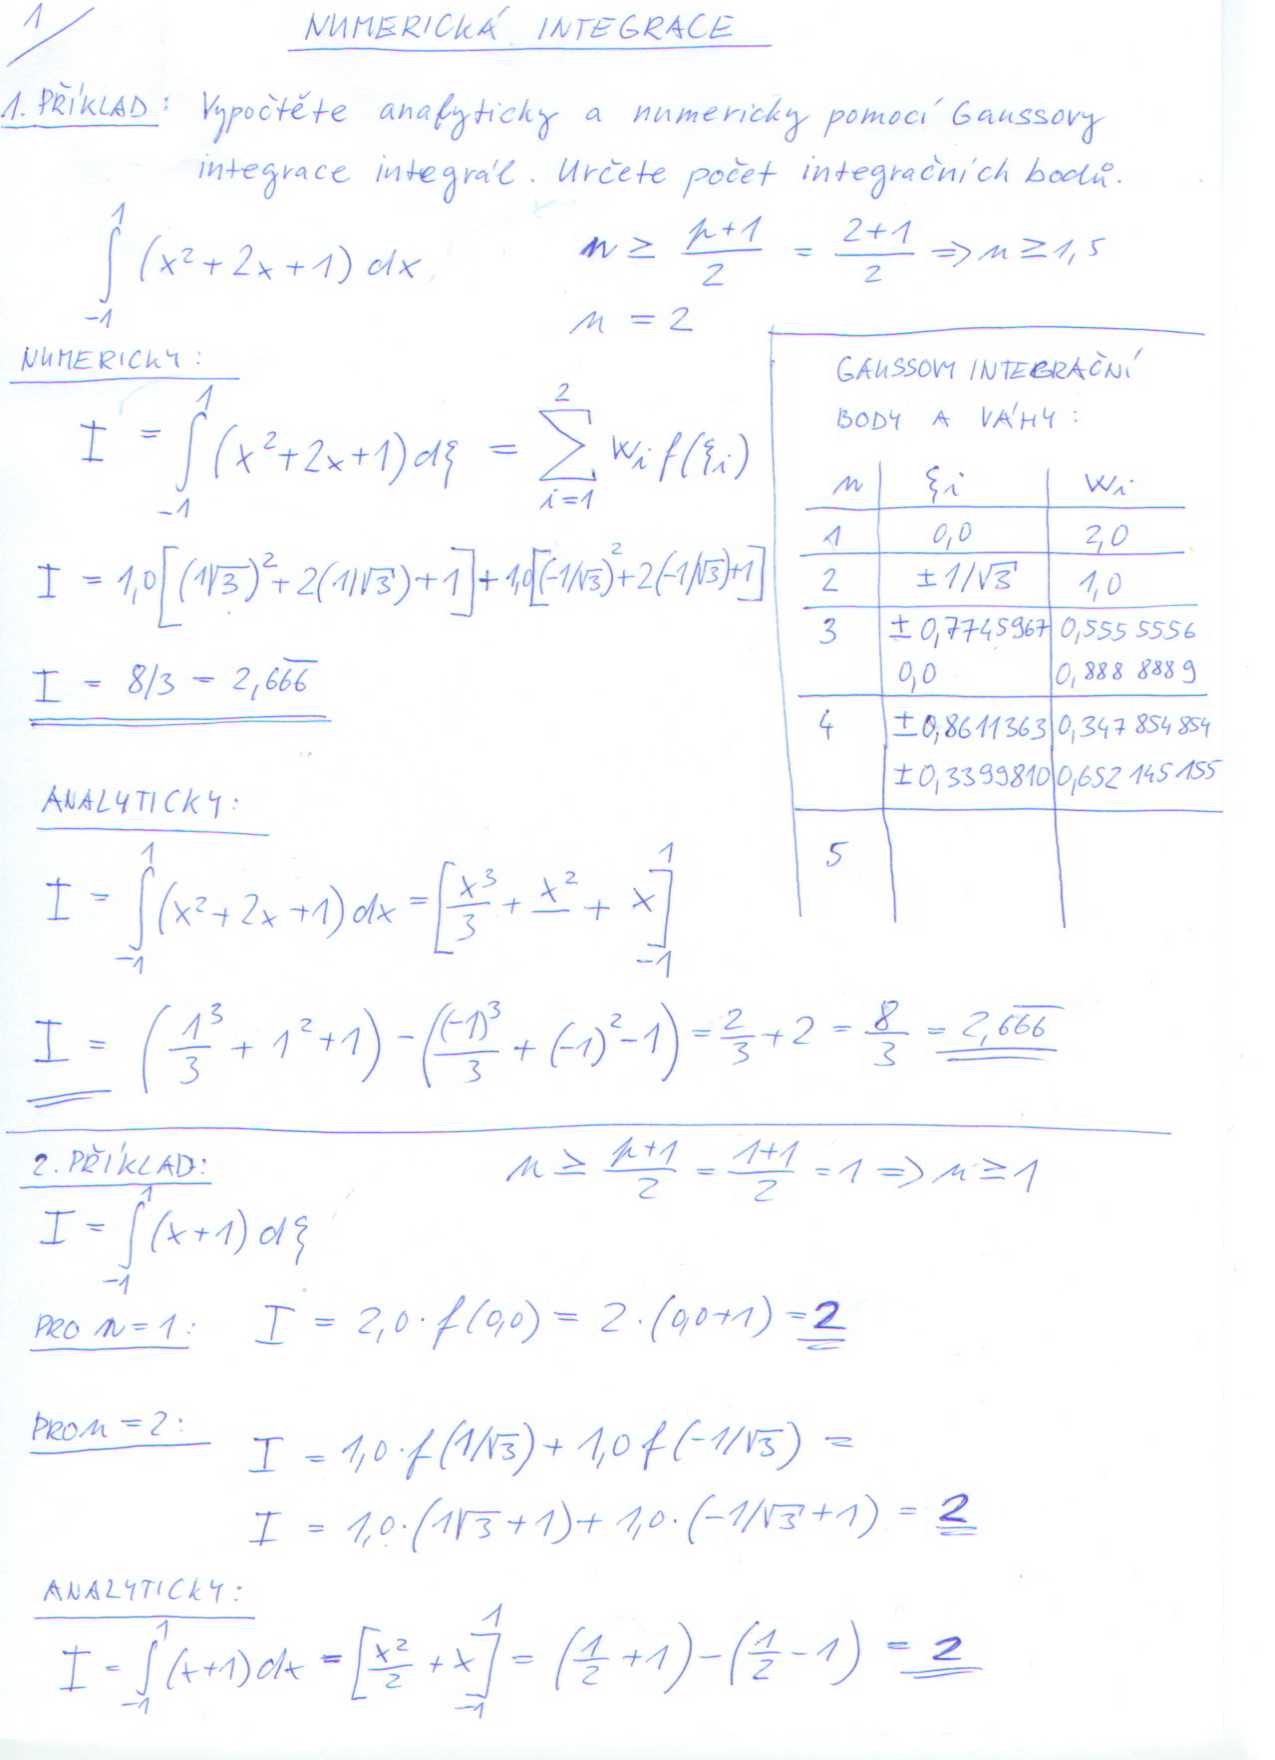 1/
NUMERICKÁ INTEGRACE
1. PŘÍKLAD: Vypočtěte analyticky a numericky pomocí Gaussovy
integrace integrál. Určete počet integračních bodů.
∫_{-1}^{1} (x² + 2x + 1) dx    n ≥ (p+1)/2 = (2+1)/2 ⇒ n ≥ 1,5
n = 2
NUMERICKY:
I = ∫_{-1}^{1} (x² + 2x + 1) dξ = ∑_{i=1}^{2} w_i f(ξ_i)
I = 1,0 [(1√3)² + 2(1/√3) + 1] + 1,0 [(-1/√3)² + 2(-1/√3) + 1]
I = 8/3 = 2,6\overline{66}
GAUSSOVY INTEGRAČNÍ
BODY A VÁHY:
n | ξ_i | w_i
1 | 0,0 | 2,0
2 | ± 1/√3 | 1,0
3 | ± 0,7745967 | 0,555 5556
0,0 | 0,888 8889
4 | ± 0,8611363 | 0,347 854 854
± 0,3399810 | 0,652 145 155
5
ANALYTICKY:
I = ∫_{-1}^{1} (x² + 2x + 1) dx = [x³/3 + x² + x]_{-1}^{1}
I = (1³/3 + 1² + 1) - ((-1)³/3 + (-1)² - 1) = 2/3 + 2 = 8/3 = 2,6\overline{66}
2. PŘÍKLAD:    n ≥ (p+1)/2 = (1+1)/2 = 1 ⇒ n ≥ 1
I = ∫_{-1}^{1} (x + 1) dξ
PRO n = 1: I = 2,0 · f(0,0) = 2 · (0,0 + 1) = 2
PRO n = 2: I = 1,0 · f(1/√3) + 1,0 f(-1/√3) =
I = 1,0 · (1√3 + 1) + 1,0 · (-1/√3 + 1) = 2
ANALYTICKY:
I = ∫_{-1}^{1} (x+1) dx = [x²/2 + x]_{-1}^{1} = (1/2 + 1) - (1/2 - 1) = 2